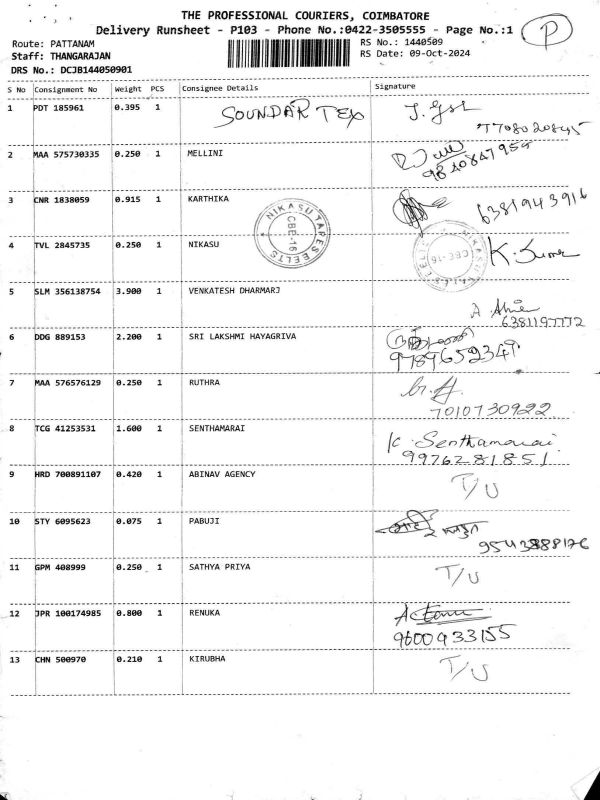 THE PROFESSIONAL COURIERS, COIMBATORE
Delivery Runsheet - P103 - Phone No.:0422-3505555 - Page No.:1
P
Route: PATTANAM
RS No.: 1440509
Staff: THANGARAJAN
RS Date: 09-Oct-2024
DRS No.: DCJB144050901
S No Consignment No Weight PCS Consignee Details Signature
1 PDT 185961 0.395 1 SOUNDAR TEX
7708020845
2 MAA 575730335 0.250 1 MELLINI
9840847959
3 CNR 1838059 0.915 1 KARTHIKA 6381943916
NIKASU TAPES
CBE-16
4 TVL 2845735 0.250 1 NIKASU K. Kumar
5 SLM 356138754 3.900 1 VENKATESH DHARMARJ
6381197772
6 DDG 889153 2.200 1 SRI LAKSHMI HAYAGRIVA
9789652349
7 MAA 576576129 0.250 1 RUTHRA
7010730922
8 TCG 41253531 1.600 1 SENTHAMARAI K. Senthamarai
9976281851
9 HRD 700891107 0.420 1 ABINAV AGENCY T/U
10 STY 6095623 0.075 1 PABUJI
9543888176
11 GPM 408999 0.250 1 SATHYA PRIYA T/U
12 JPR 100174985 0.800 1 RENUKA
9600933155
13 CHN 500970 0.210 1 KIRUBHA T/U